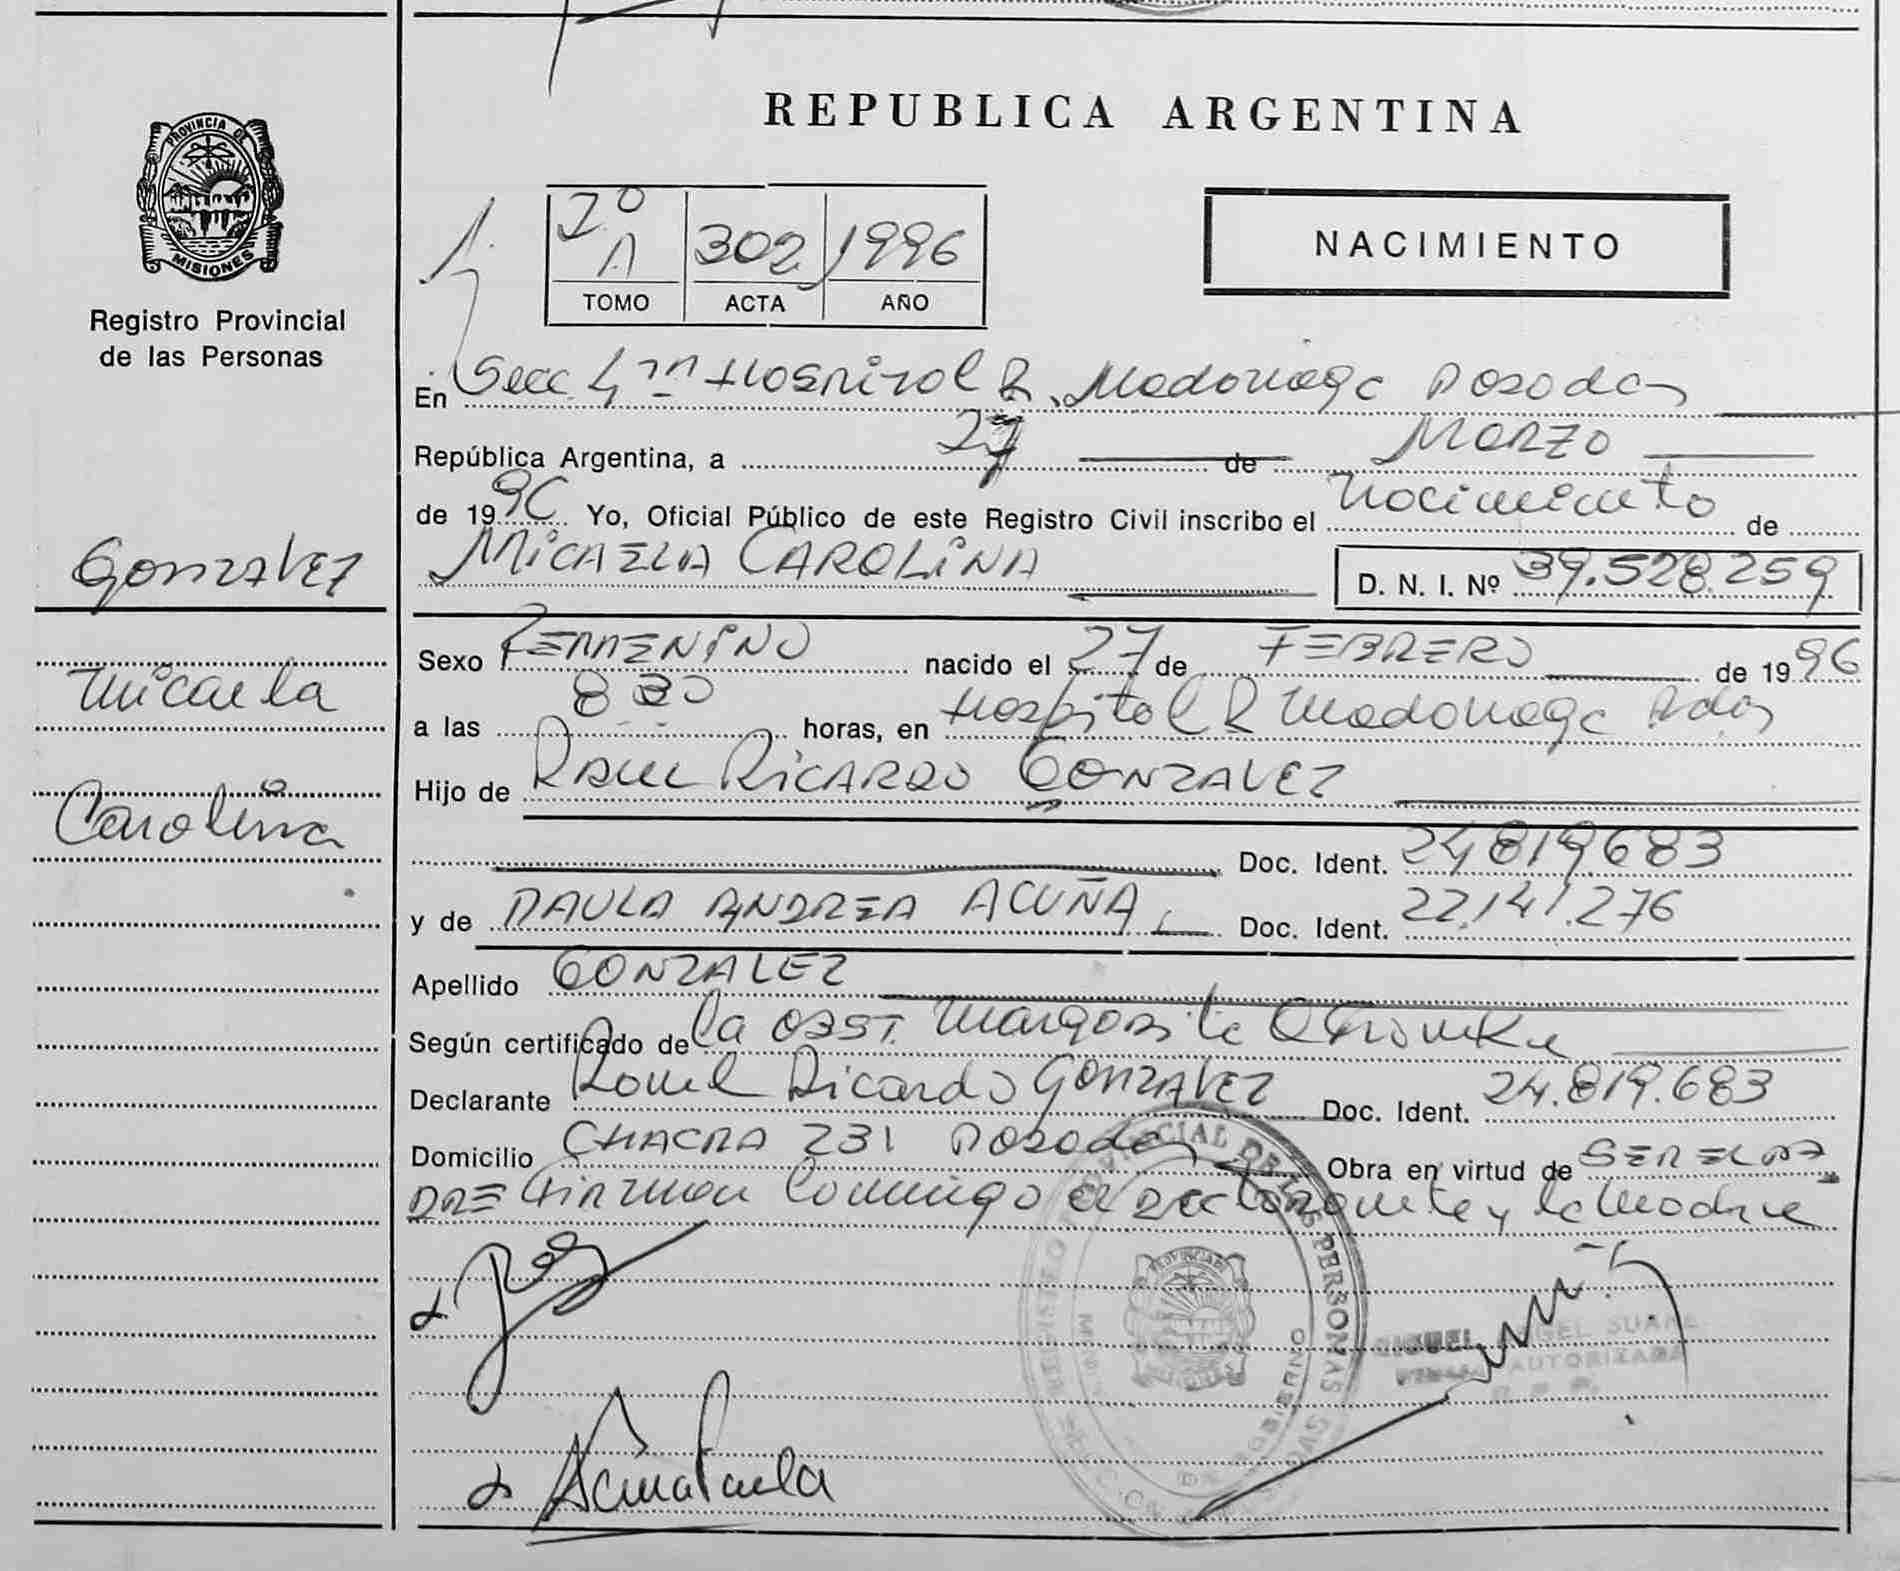 REPUBLICA ARGENTINA
PROVINCIA DE
MISIONES
Registro Provincial
de las Personas
Gonzalez
Micaela
Carolina
2º
A 302 1996
TOMO ACTA AÑO
NACIMIENTO
En Secc 4ta Hospital R. Madariaga Posadas
República Argentina, a 27 de Marzo
de 1996 Yo, Oficial Público de este Registro Civil inscribo el Nacimiento de
MICAELA CAROLINA D. N. I. Nº 39.528.259
Sexo FEMENINO nacido el 27 de FEBRERO de 1996
a las 8 30 horas, en Hospital R Madariaga Pdas
Hijo de RAUL RICARDO GONZALEZ
Doc. Ident. 24.819.683
y de PAULA ANDREA ACUÑA Doc. Ident. 22.141.276
Apellido GONZALEZ
Según certificado de la OBST. Margarita
Declarante Raul Ricardo GONZALEZ Doc. Ident. 24.819.683
Domicilio CHACRA 231 Posadas Obra en virtud de SER EL PA
DRE Firman Conmigo el declarante y la Madre
REGISTRO PROVINCIAL DE LAS PERSONAS
Acuña Paula
MIGUEL ANGEL SUAREZ
FIRMA AUTORIZADA